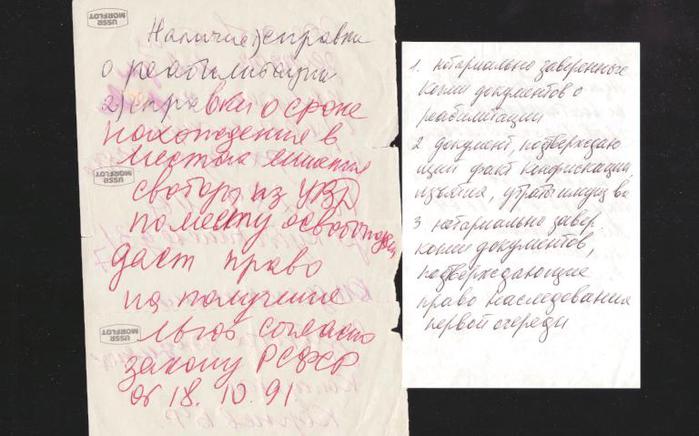 USSR
MORFLOT
Наличие 1) справки
о реабилитации
2) справки о сроке
нахождения в
местах лишения
USSR
MORFLOT
свободы из УВД
по месту освобожден
дает право
на получение
льгот согласно
USSR
MORFLOT
закону РСФСР
от 18.10.91
1. нотариально заверенные
копии документов о
реабилитации
2 документ, подтверждаю
щий факт конфискации,
изъятия, утраты имущ ва
3 нотариально завер.
копии документов,
подтверждающие
право наследования
первой очереди